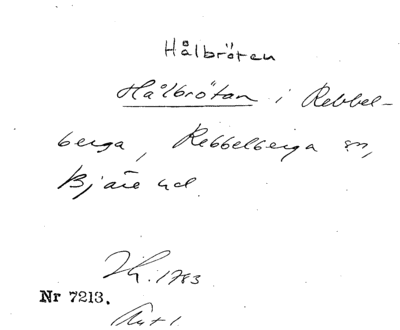 Hålbröten
Hålbrötan i Rebbel-
berga, Rebbelberga sn,
Bjäre hd.
1783
Nr 7213.